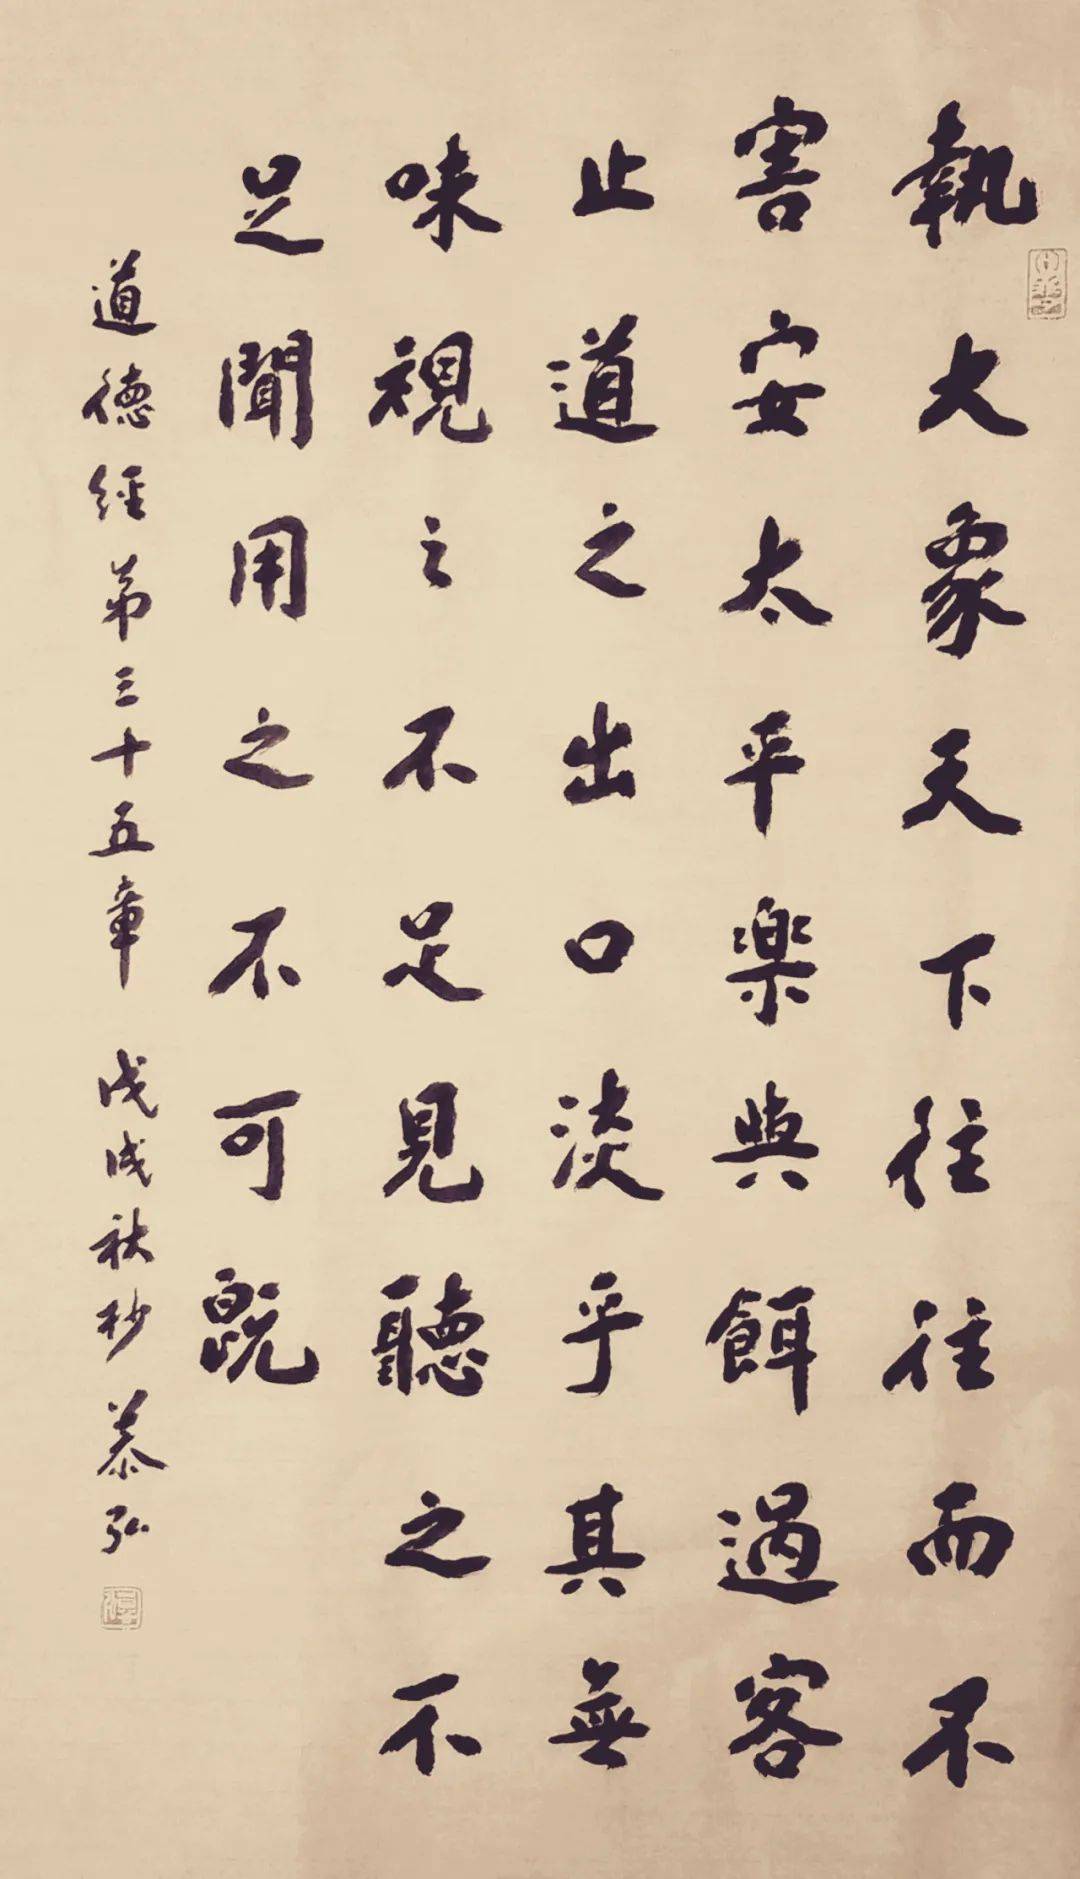 執大象天下往往而不
害安太平樂與餌過客
止道之出口淡乎其無
味視之不足見聽之不
足聞用之不可既
道德經第三十五章 戊戌秋杪 慕弘